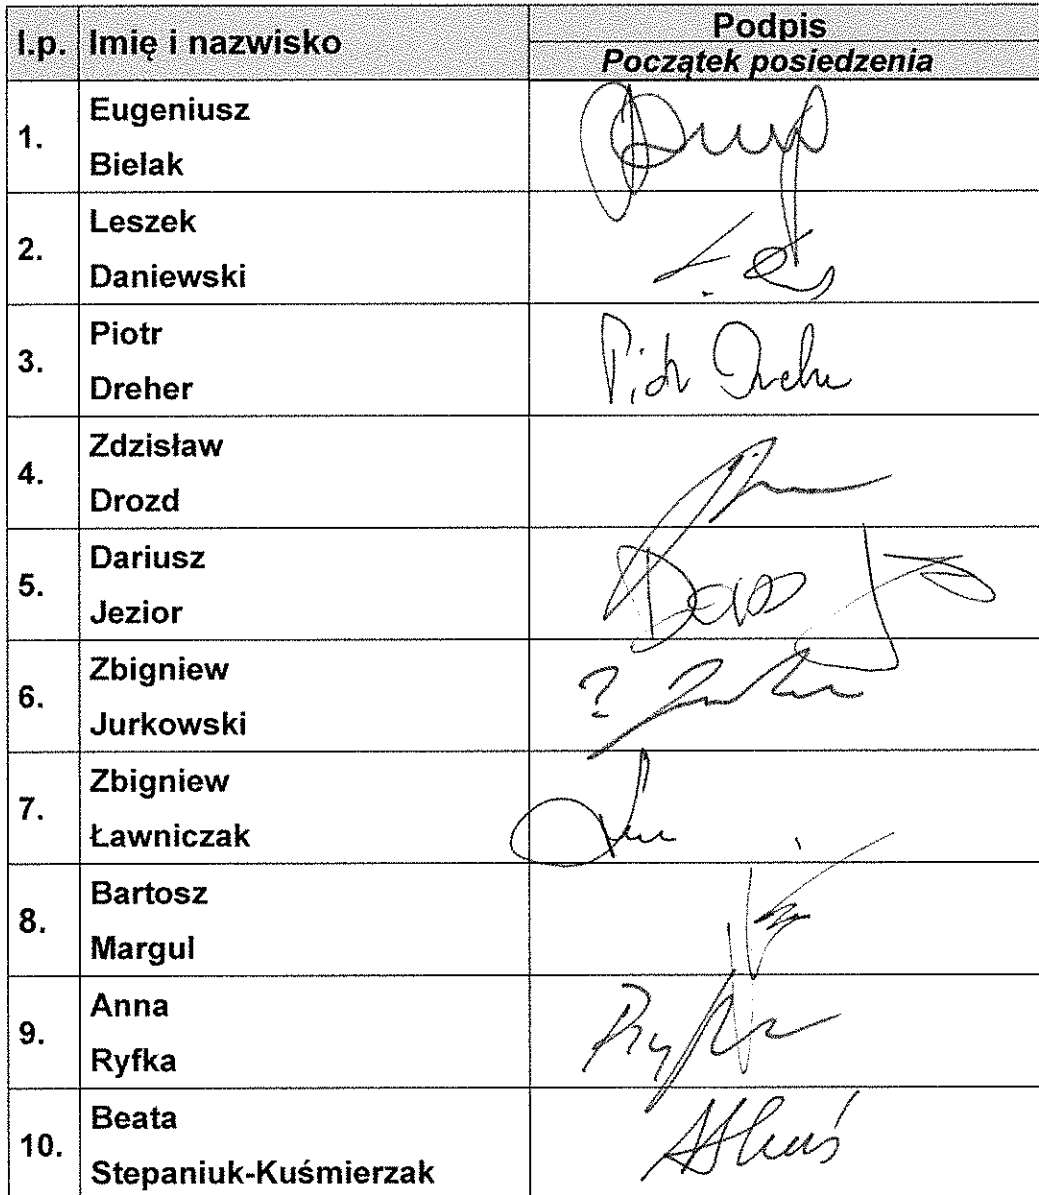 l.p. Imię i nazwisko Podpis
Początek posiedzenia
1. Eugeniusz
Bielak
2. Leszek
Daniewski
3. Piotr
Dreher
Piotr Dreher
4. Zdzisław
Drozd
5. Dariusz
Jezior
6. Zbigniew
Jurkowski
7. Zbigniew
Ławniczak
8. Bartosz
Margul
9. Anna
Ryfka
Ryfka
10. Beata
Stepaniuk-Kuśmierzak